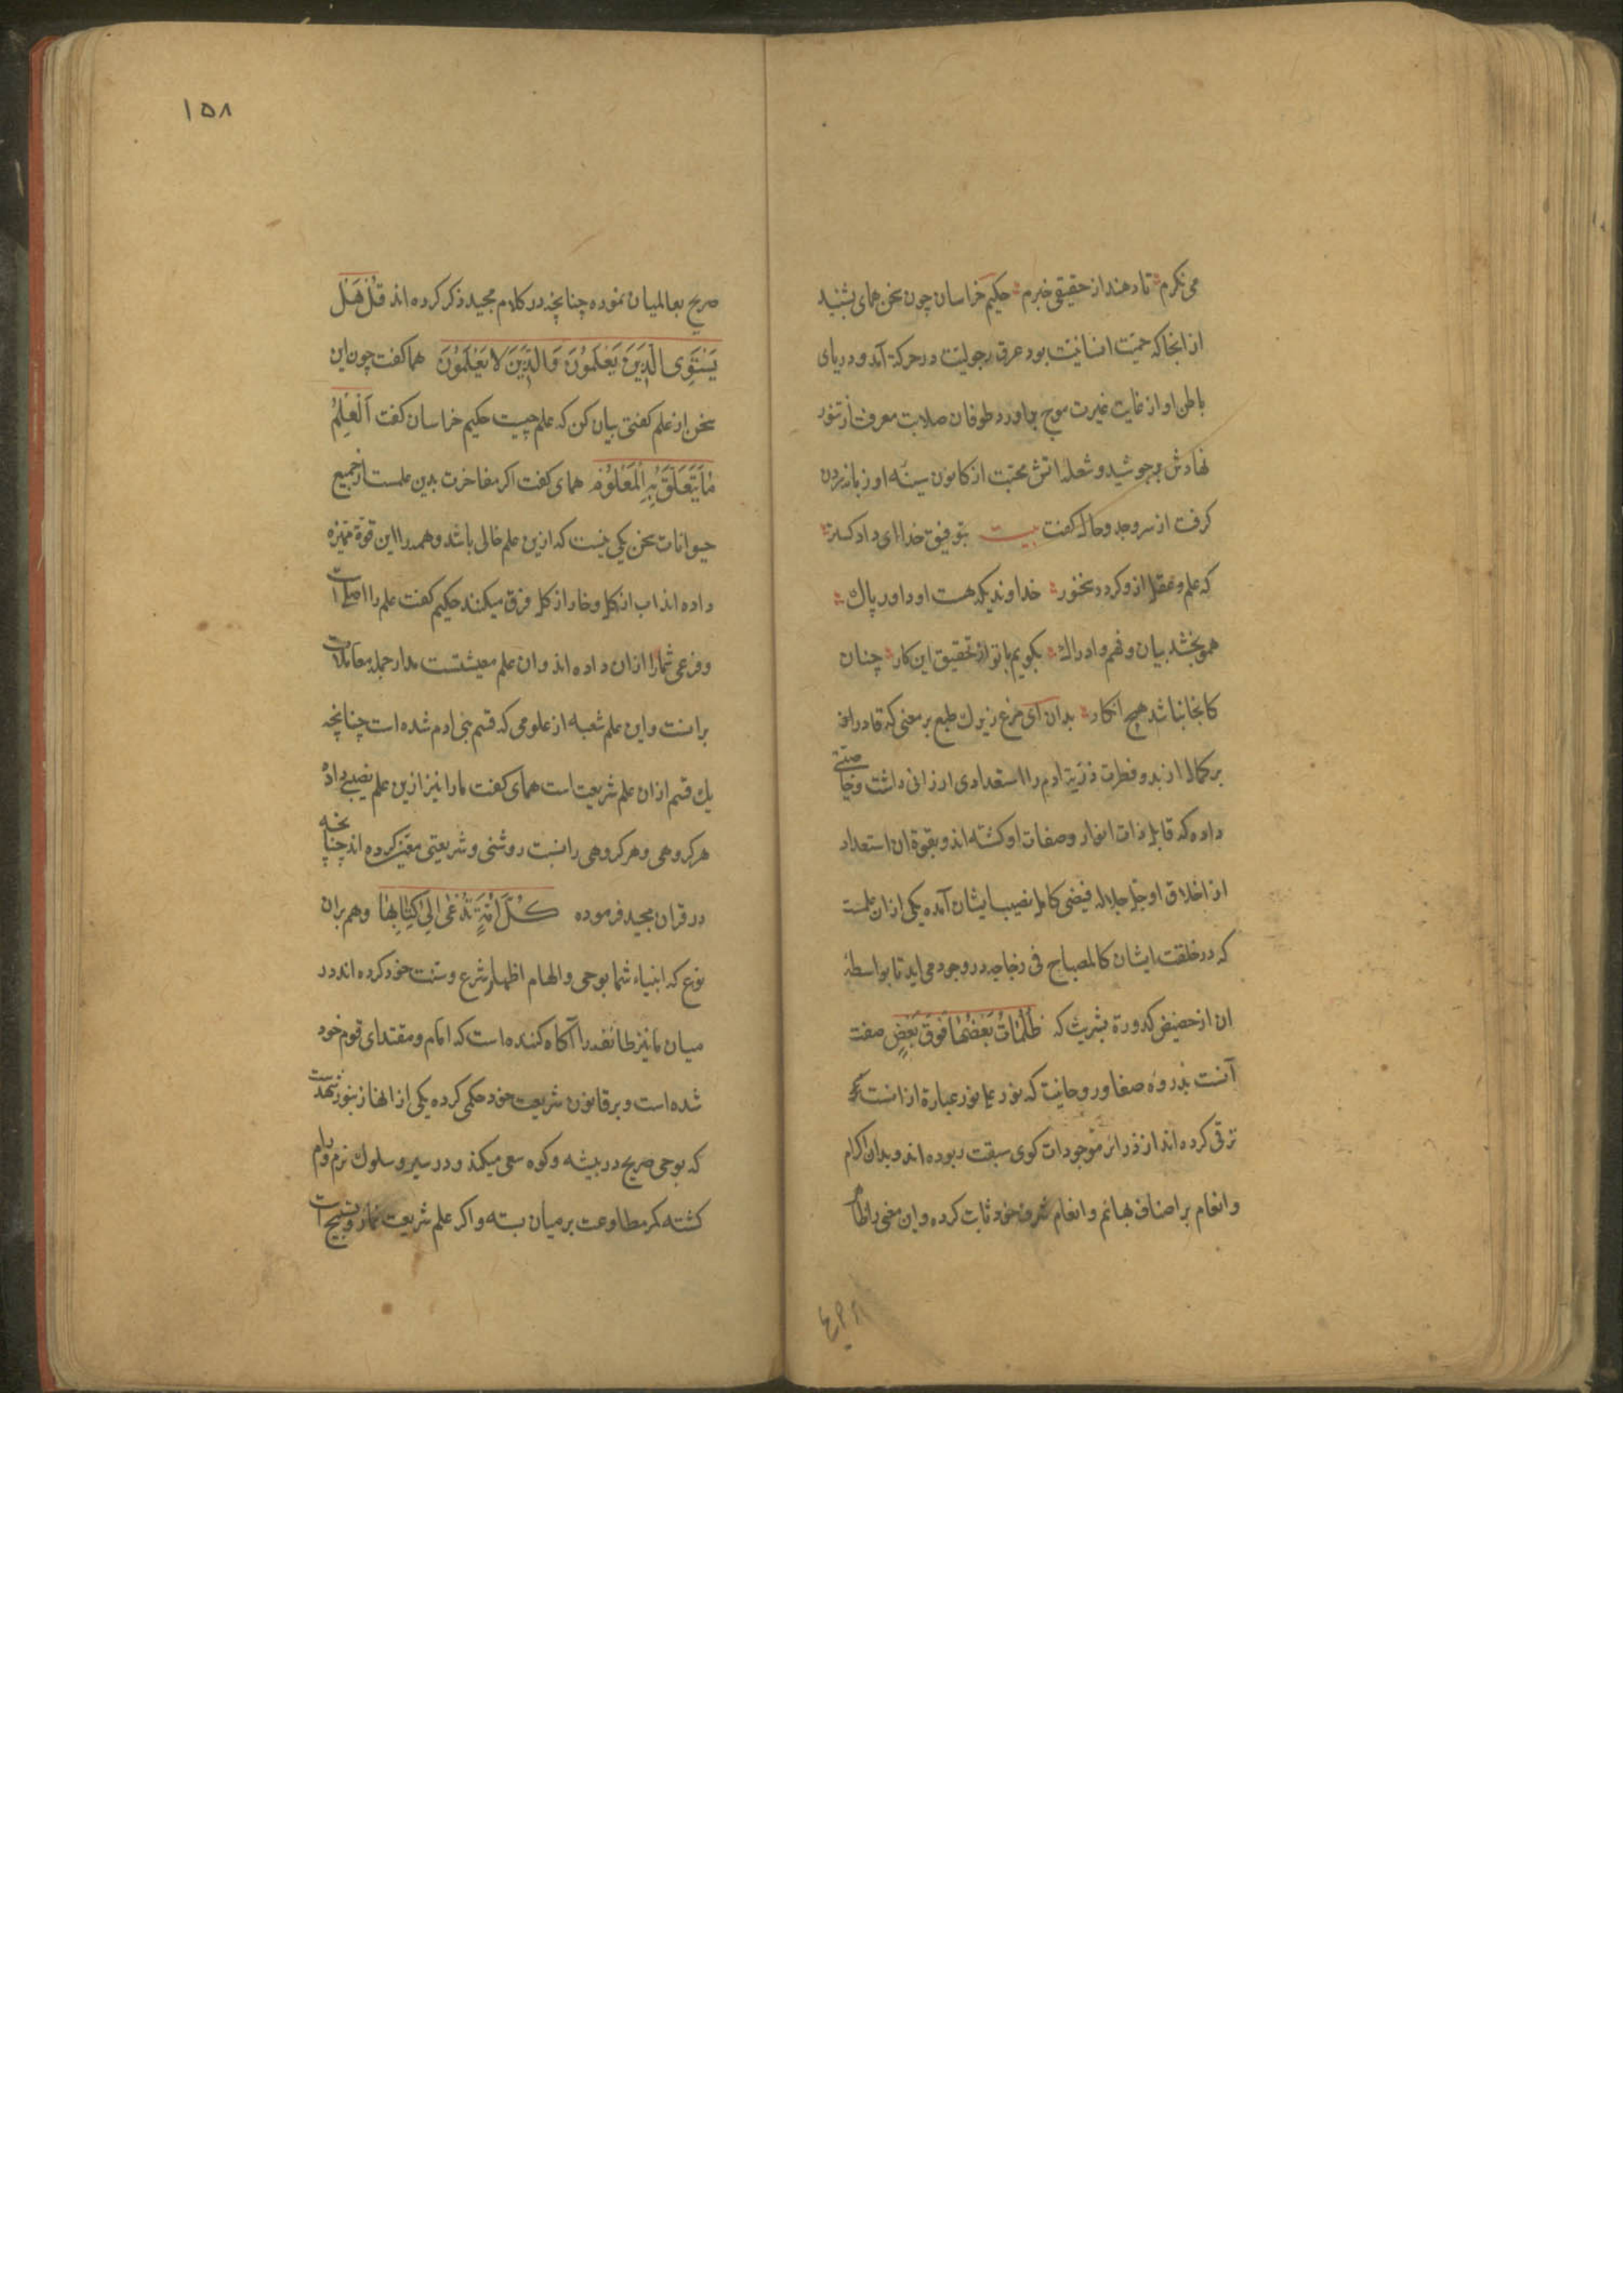 می نکرم تا دهند از حقیقی خبرم حکیم خراسان چون سخن همای بشنید
از انجا که حمیّت انسانیّت بود عرق رجولیّت در حرکة آمد و دریای
باطن او از غایت غیرت موج براورد و طوفان صلابت معرفت از تنور
نهادش بر جوشید و شعلۀ اتش محبّت از کانون سینۀ او زبانه زدن
کرفت از سر وجد و حال کفت بیت بتوفیق خداای داد کستر
که علم و عقل ازو کردد سخنور خداوندیکه هست او داور پاك
همو بخشد بیان و فهم و ادراك بکویم با تو از تحقیق این کار چنان
کانجا نباشد هیچ انکار بدان ای مرغ زیرك طبع پر معنی که قادر
بر کمال از بدو فطرت ذرّیة ادم را استعدادی ارزانی داشت و خاصّیتی
داده که قابل ذات انوار و صفات او کشته اند و بقوّة ان استعداد
از اخلاق او جلّ جلاله فیضی کامل نصیب ایشان آمده یکی از ان علمست
که در خلقت ایشان کالمصباح فی زجاجه در وجود می اید تا بواسطۀ
ان از حضیض کدورة بشریت که ظُلُمَاتٌ بَعْضُهَا فَوْقَ بَعْضٍ صفت
آنست بذروۀ صفا و روحانیت که نور علی نور عبارة از انست
ترقی کرده اند از ذرائر موجودات کوی سبقت ربوده اند و بدان اکرام
و انعام بر اصناف بهائم و انعام شرف خود ثابت کرده و این معنی را
۱۵۸
صریح بعالمیان نموده چنانچه در کلام مجید ذکر کرده اند قُلْ هَلْ
یَسْتَوِی الَّذِینَ یَعْلَمُونَ وَالَّذِینَ لَا یَعْلَمُونَ هما کفت چون این
سخن از علم کفتی بیان کن که علم چیست حکیم خراسان کفت اَلْعِلْمُ
مَا یَتَعَلَّقُ بِهِ الْمَعْلُوْمُ همای کفت اکر مفاخرت بدین علمست از جمیع
حیوانات سخن یکی نیست که ازین علم خالی باشد و همه را این قوّة ممیّزه
داده اند اب از کل و خار از کل فرق میکنند حکیم کفت علم را اصلی است
و فرعی شما را از ان داده اند و ان علم معیشتست مدار جمله معاملات
برانست و این علم شعبه از علومی که قسم بنی ادم شده است چنانچه
یك قسم از ان علم شریعت است همای کفت ما را نیز ازین علم نصیبی داده
هر کروهی و هر کروهی را نسبت روشنی و شریعتی معیّن کرده اند چنانچه
در قران مجید فرموده کُلُّ اُمَّةٍ تُدْعٰی اِلٰی کِتَابِهَا و هم بران
نوع که انبیاء شما بوحی و الهام اظهار شرع و سنّت خود کرده اند در
میان ما نیز طائفه را آکاه کننده است که امام و مقتدای قوم خود
شده است و بر قانون شریعت خود حکمی کرده یکی از انها زنبور شهدست
که بوحی صریح در بیشه و کوه سعی میکند و در سیر و سلوك نرم و رام
کشته کمر مطاوعت بر میان بسته و اکر علم شریعت نماز و تسبیح است